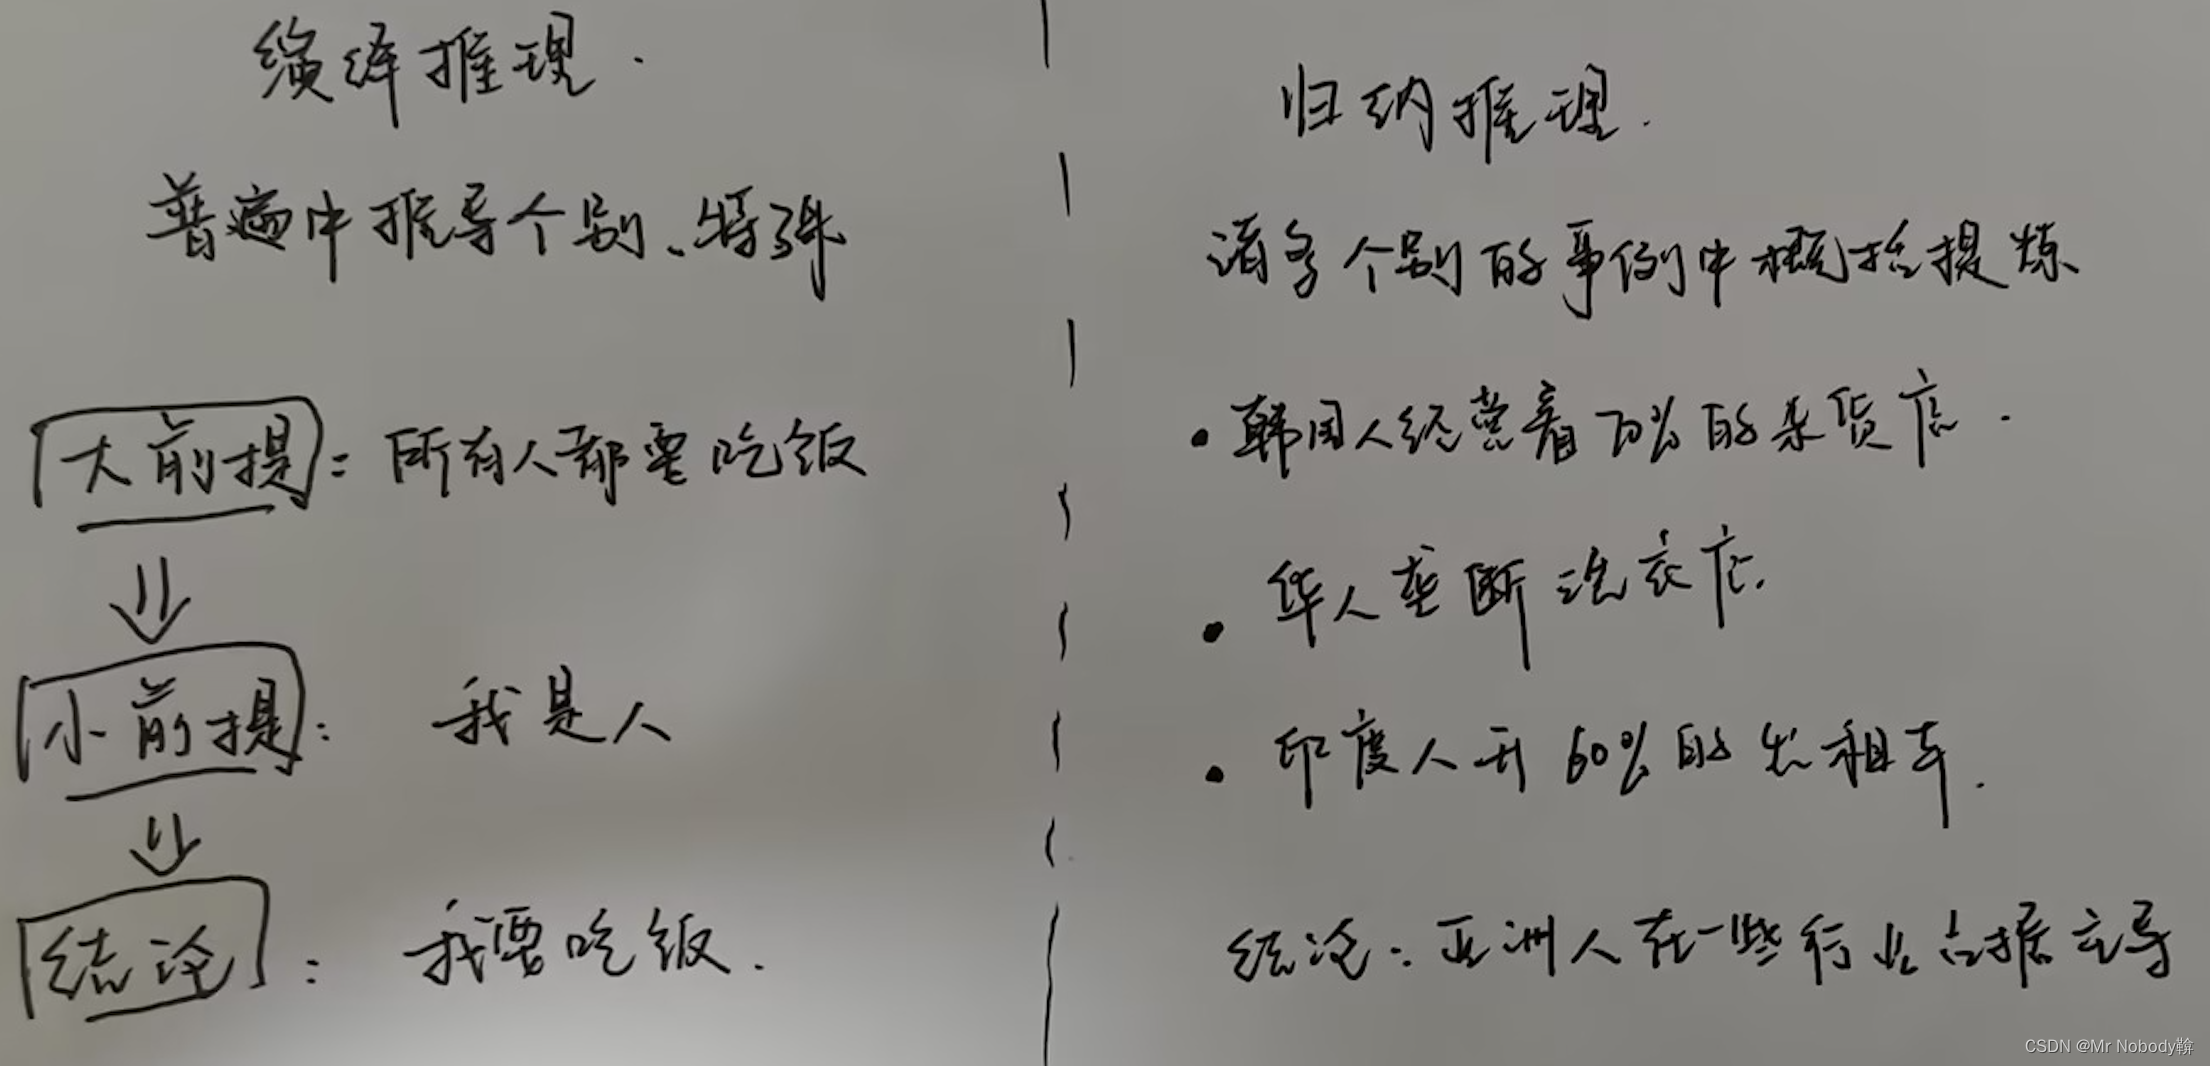 演绎推理.
普遍中推导个别、特殊
大前提：所有人都要吃饭
小前提：我是人
结论：我要吃饭.
归纳推理.
诸多个别的事例中概括提炼
·韩国人经营着70%的杂货店.
·华人垄断洗衣店.
·印度人开60%的出租车.
结论：亚洲人在一些行业占据主导
CSDN @Mr Nobody